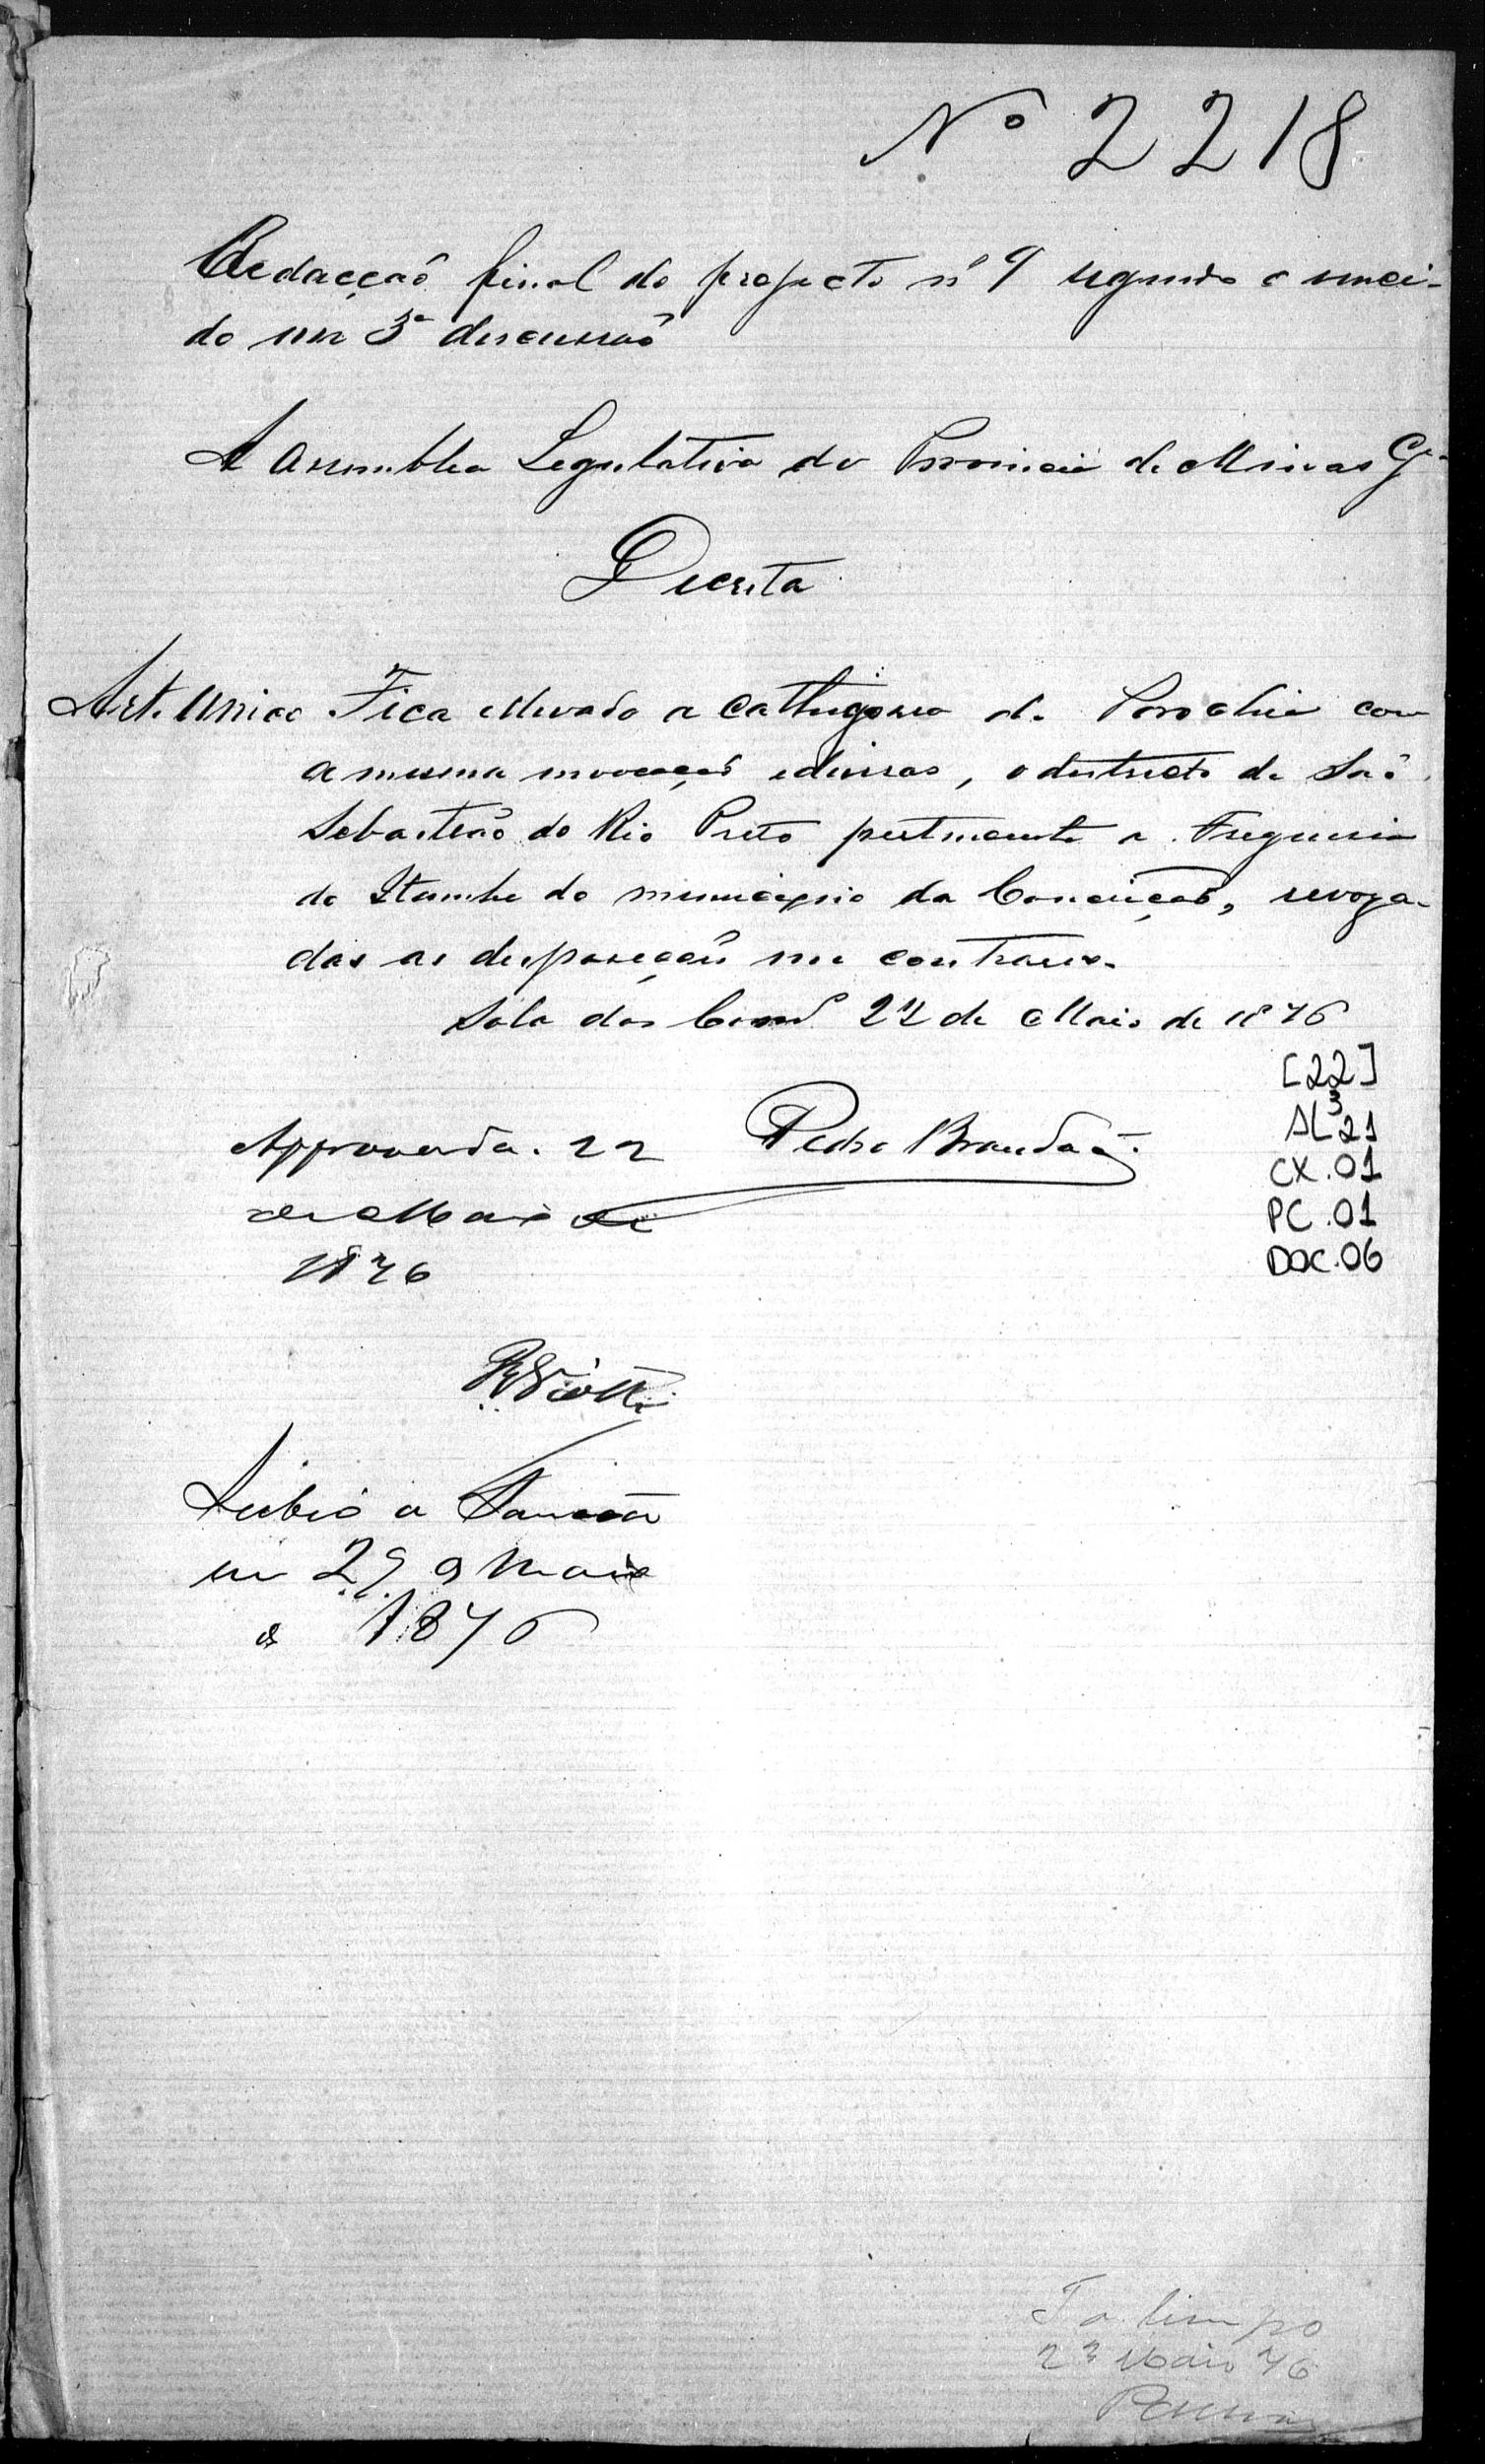 Nº 2218
Redacçaõ final do projecto nº 9 segundo o venci-
do em 3ª discussaõ
A Assemblea Legislativa da Provincia de Minas Ges
Decreta
Art. Unico Fica elevado a cathegoria de Parochia com
a mesma invocaçaõ e divisas, o districto de Saõ
Sebastiaõ do Rio Preto pertencente a Freguesia
do Itambe do municipio da Conceiçaõ, revoga-
das as desposeções em contrario.
Sala das Comões 22 de Maio de 1876
Pedro Brandaõ.
Approvada. 22
de Maio de
1876
Viotti
Subio a Sancção
em 29 de Maio
de 1876
[22]
AL 3 21
CX. 01
PC. 01
DOC. 06
Ta limpo
23 Maio 76